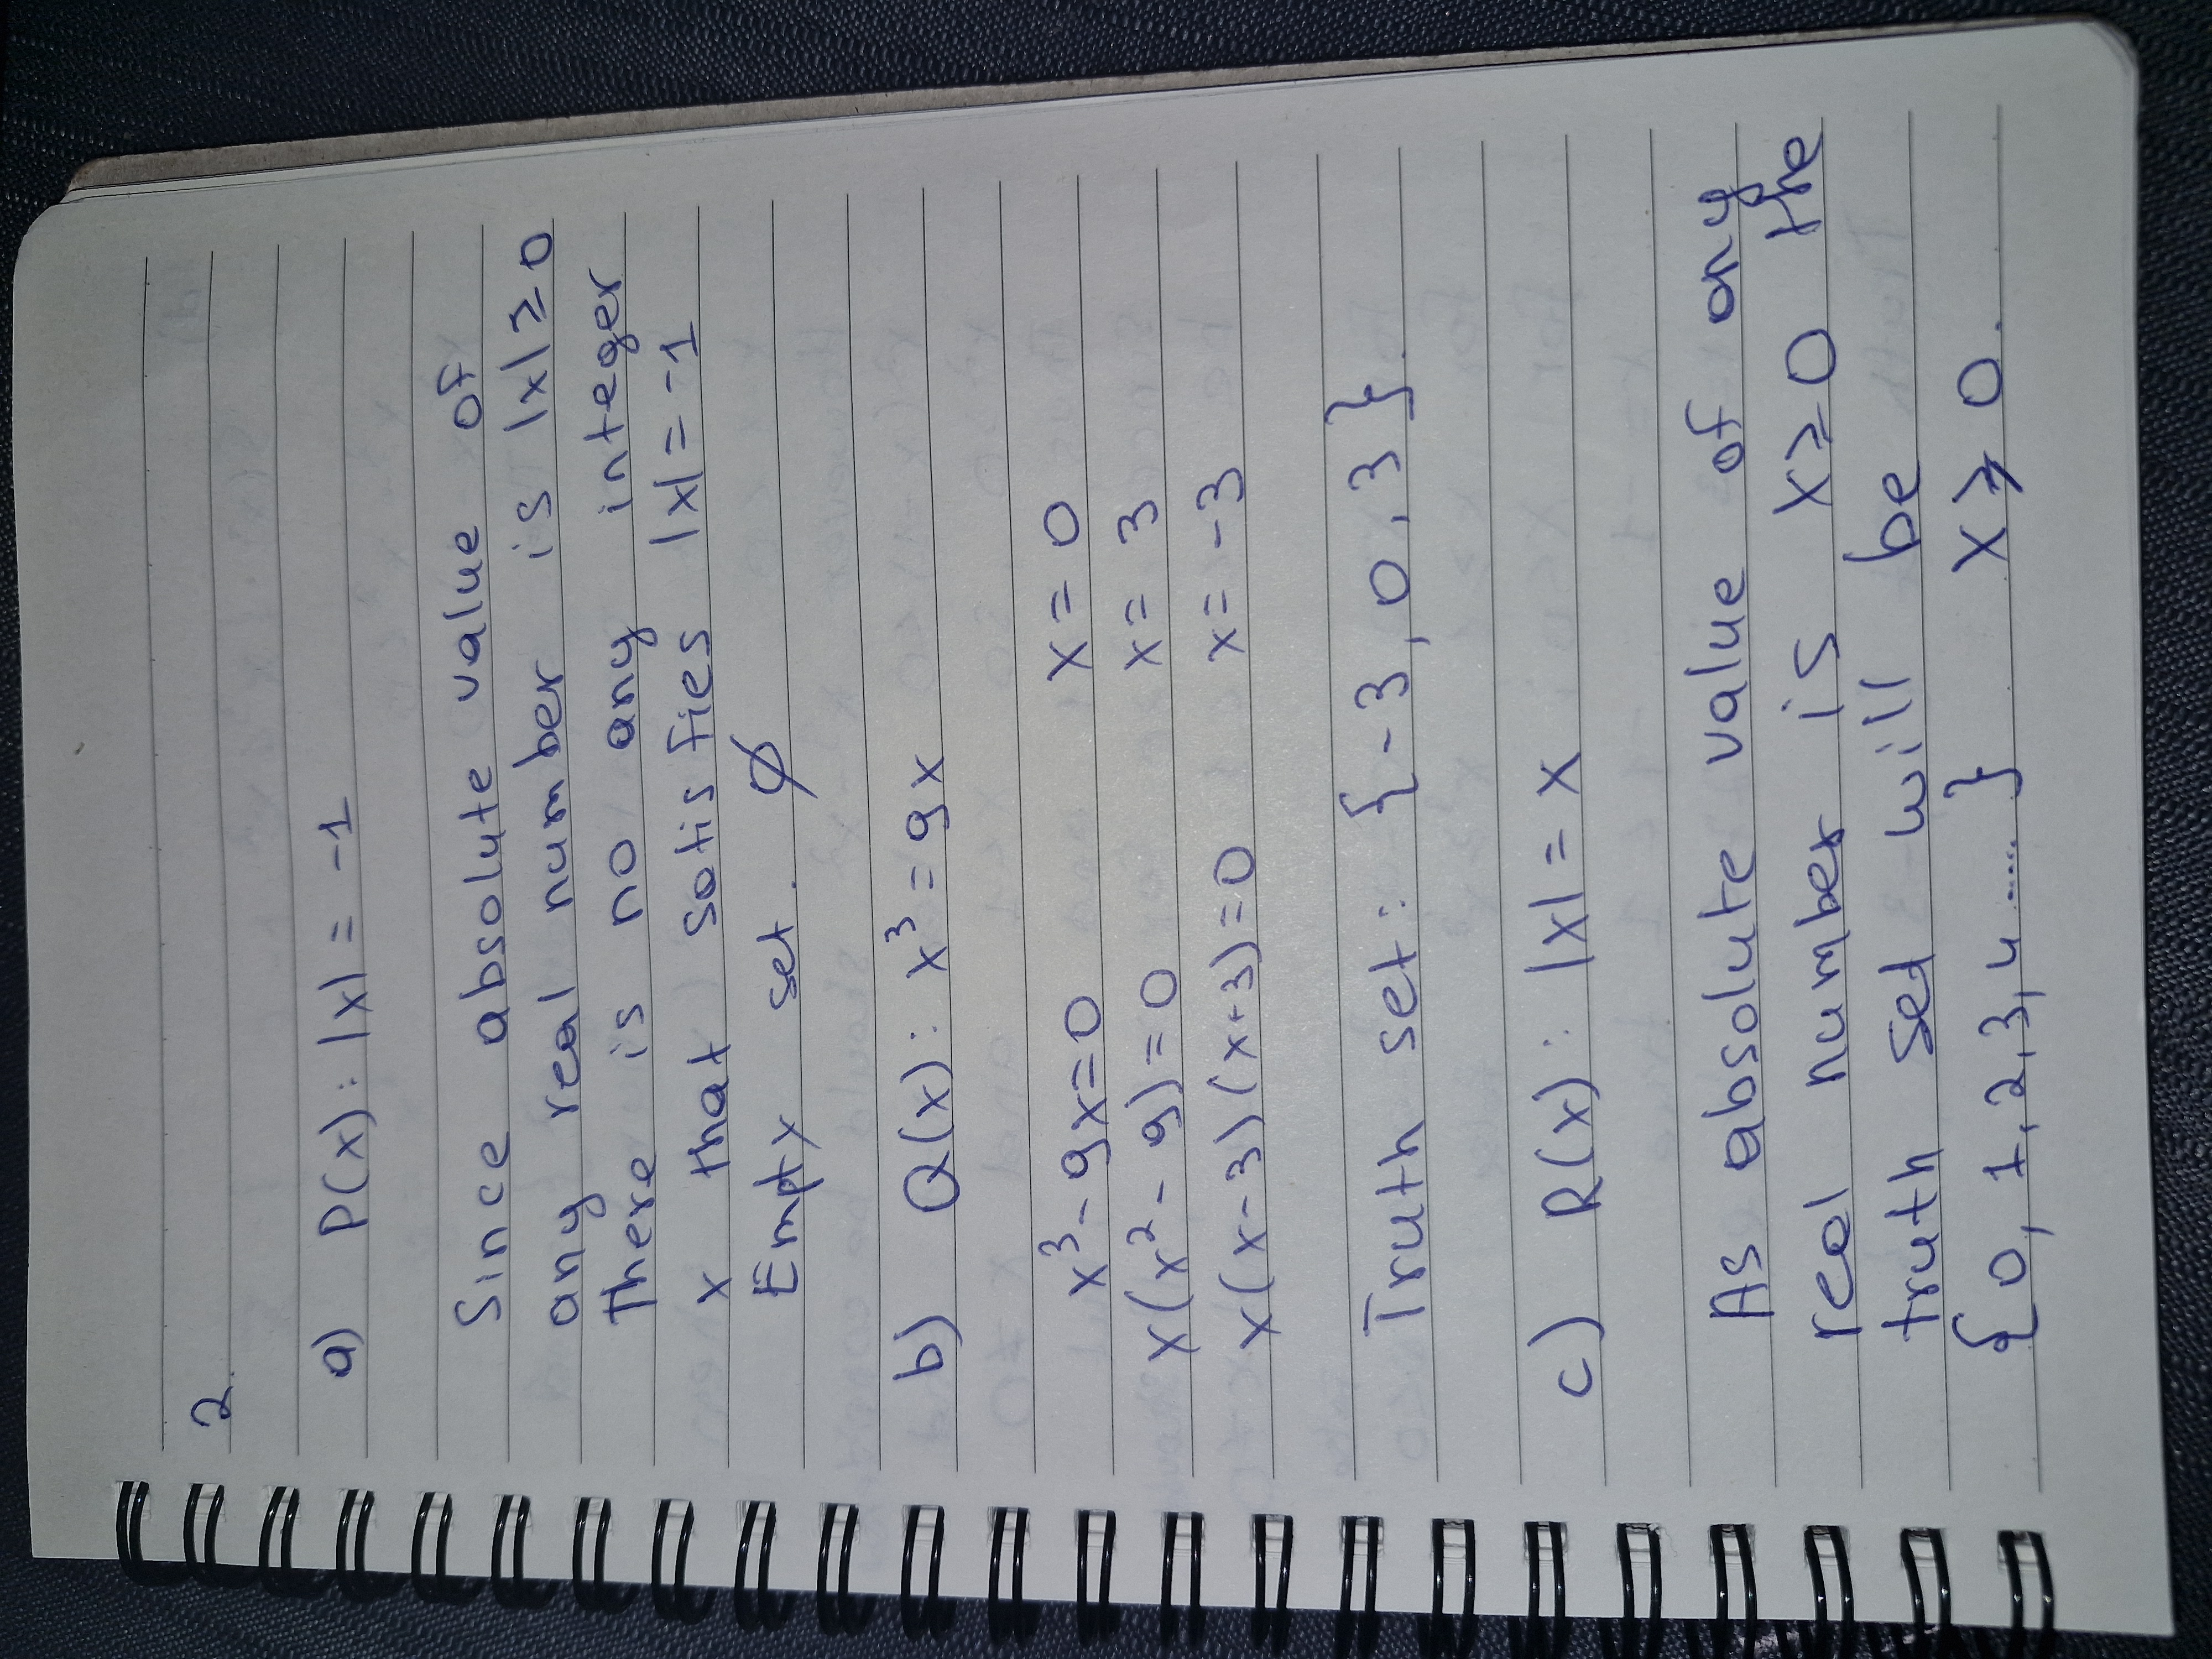 2.
a) P(x): |x| = -1
Since absolute value of
any real number is |x| ≥ 0
there is no any integer
x that satisfies |x| = -1
Empty set. ∅
b) Q(x): x³ = 9x
x³ - 9x = 0 x = 0
x(x² - 9) = 0 x = 3
x(x-3)(x+3) = 0 x = -3
Truth set: {-3, 0, 3}.
c) R(x): |x| = x
As absolute value of any
real number is x ≥ 0 the
truth set will be
{0, 1, 2, 3, 4 .....} x ≥ 0.